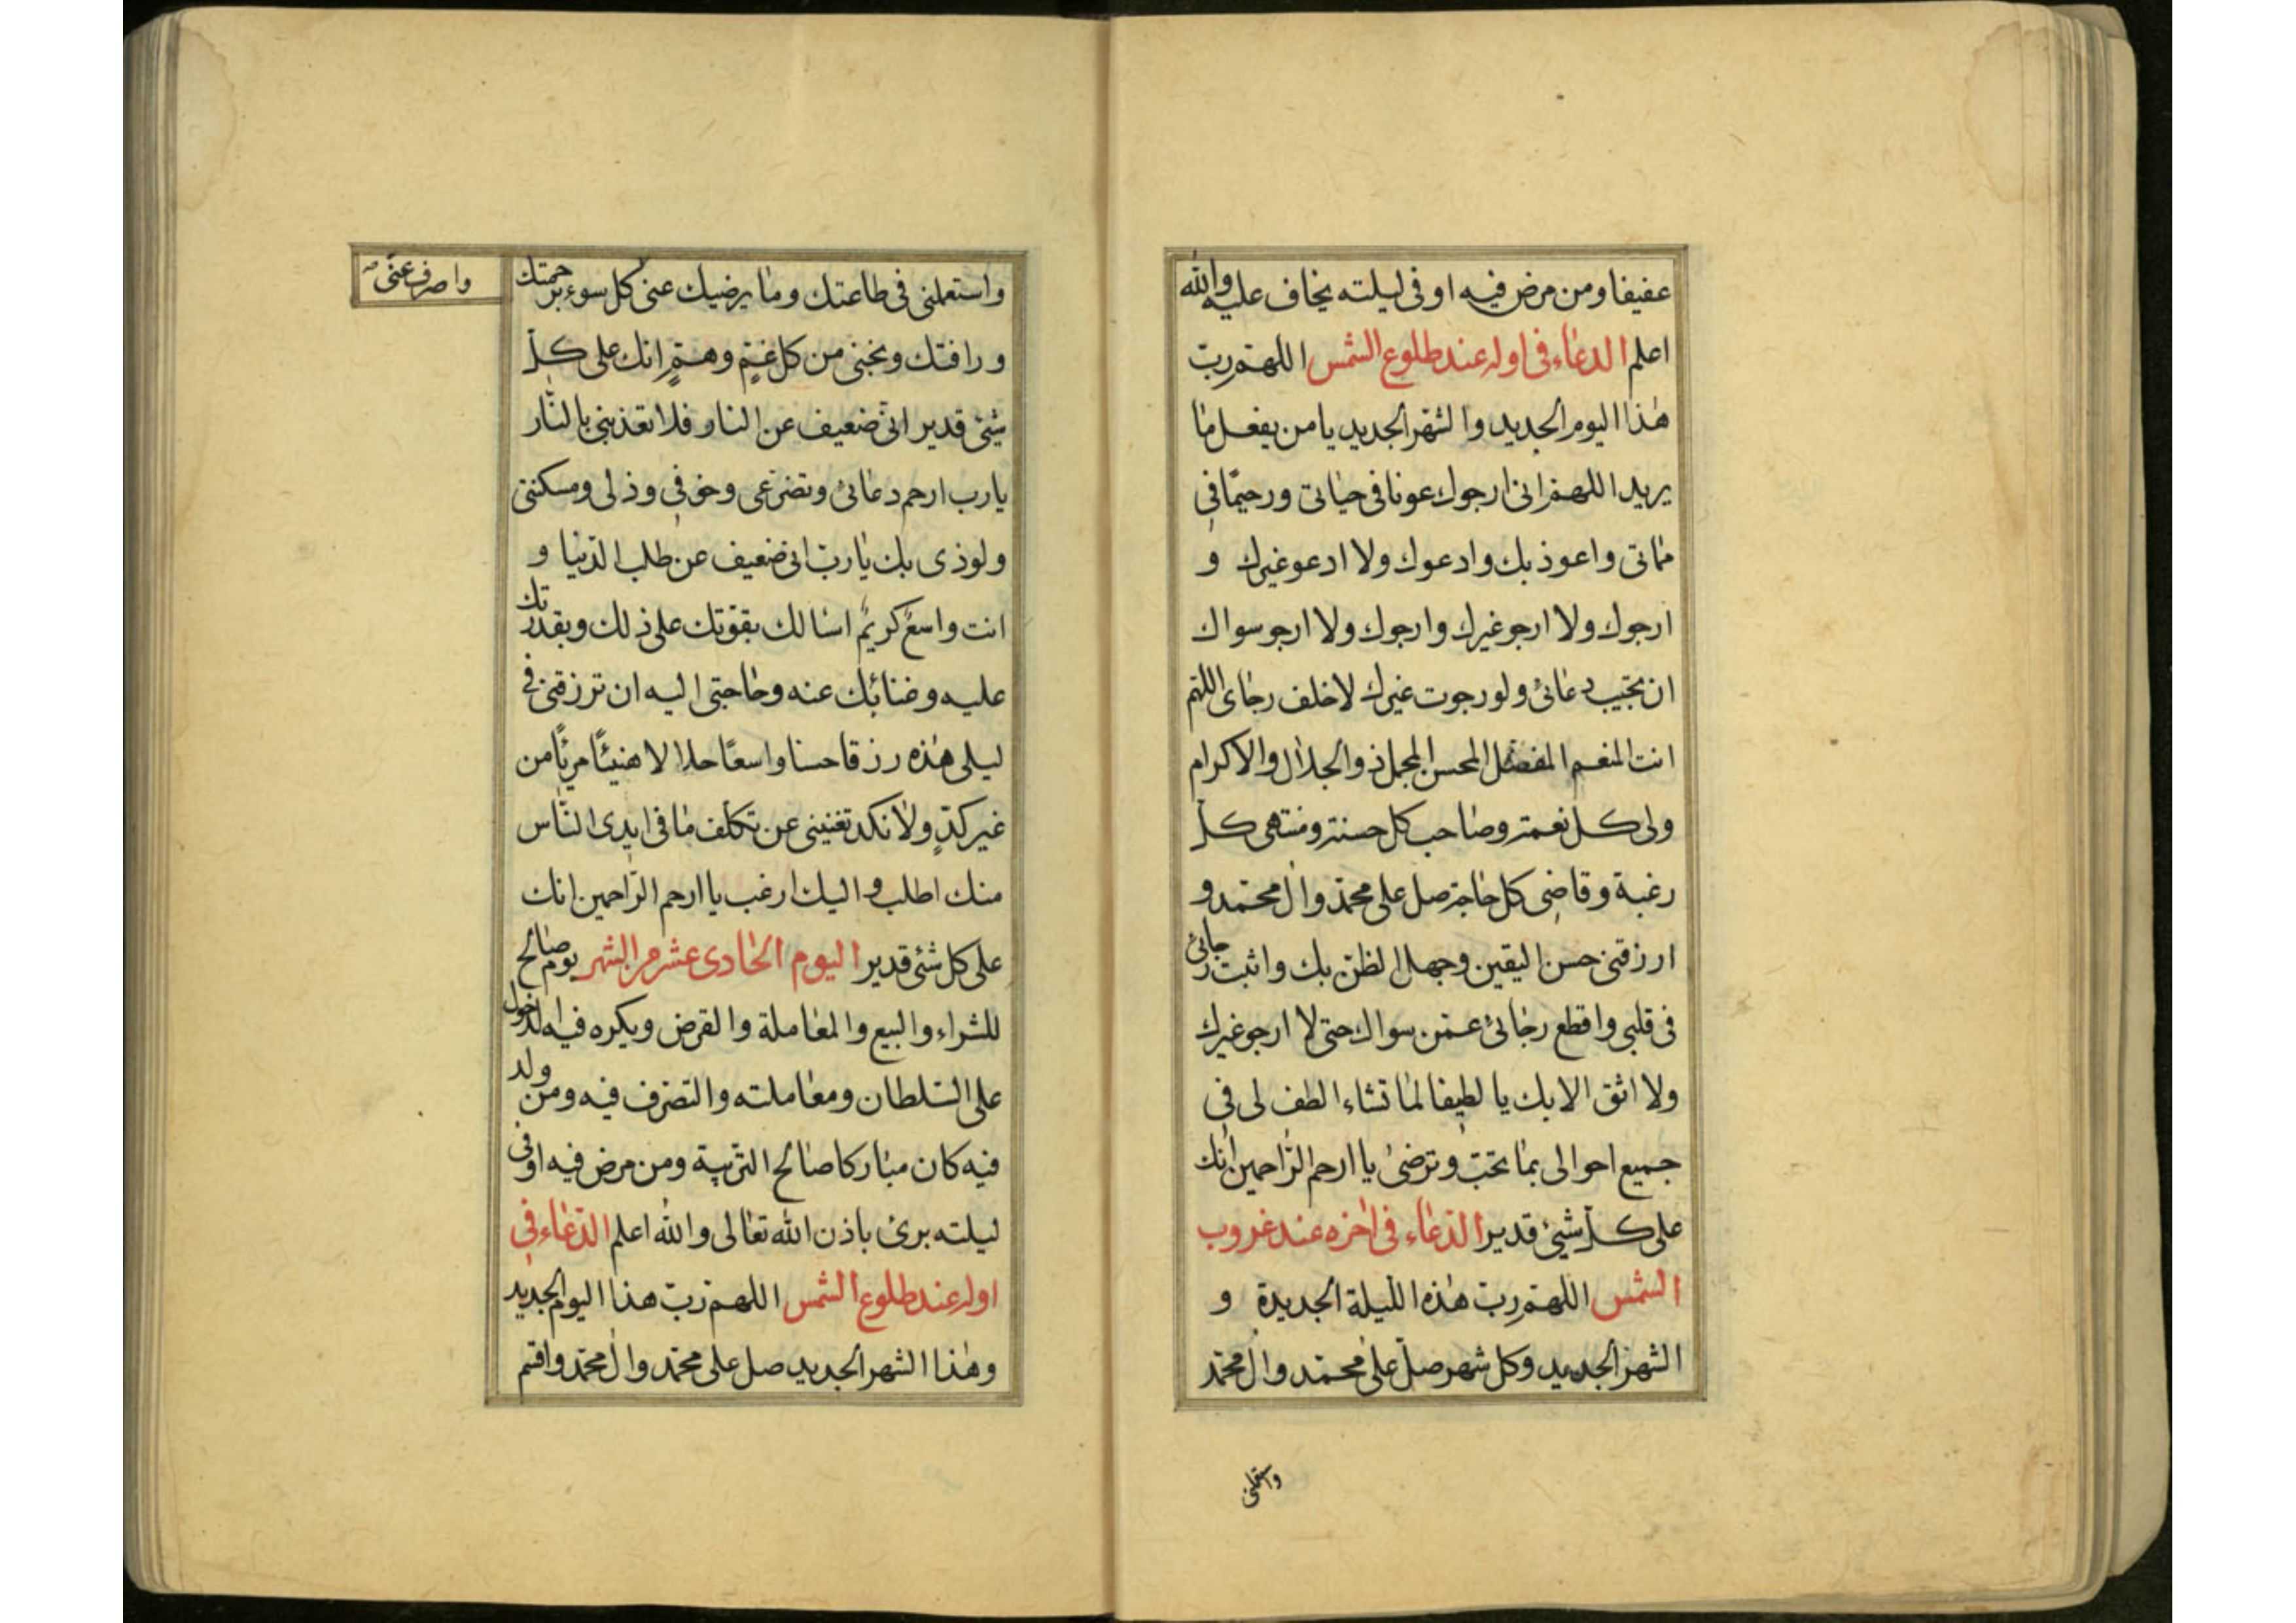 عفيفا ومن مرض فيه او فى ليلته يخاف عليه والله
اعلم الدعاء فى اوله عند طلوع الشمس اللهم رب
هذا اليوم الجديد والشهر الجديد يا من يفعل ما
يريد اللهم انى ارجوك عونا فى حياتى ورحيما فى
مماتى واعوذ بك وادعوك ولا ادعو غيرك و
ارجوك ولا ارجو غيرك وارجوك ولا ارجو سواك
ان تجيب دعائى ولو رجوت غيرك لاخلف رجاى اللهم
انت المنعم المفضل المحسن المجمل ذو الجلال والاكرام
ولى كل نعمة وصاحب كل حسنة ومنتهى كل
رغبة وقاضى كل حاجة صل على محمد وال محمد و
ارزقنى حسن اليقين وجهل الظن بك واثبت رجائى
فى قلبى واقطع رجائى عمن سواك حتى لا ارجو غيرك
ولا اثق الا بك يا لطيفا لما تشاء الطف لى فى
جميع احوالى بما تحب وترضى يا ارحم الراحمين انك
على كل شىء قدير الدعاء فى اخره عند غروب
الشمس اللهم رب هذه الليلة الجديدة و
الشهر الجديد وكل شهر صل على محمد وال محمد
واستعملنى فى طاعتك وما يرضيك عنى كل سوء برحمتك
واصرف عنى صح
ورافتك ونجنى من كل غم وهم انك على كل
شىء قدير انى ضعيف عن النار فلا تعذبنى بالنار
يا رب ارحم دعائى وتضرعى وخوفى وذلى ومسكنتى
ولوذى بك يا رب انى ضعيف عن طلب الدنيا و
انت واسع كريم اسالك بقوتك على ذلك وبقدرتك
عليه وغنائك عنه وحاجتى اليه ان ترزقنى فى
ليلى هذه رزقا حسنا واسعا حلالا هنيئا مريئا من
غير كد ولا نكد تغنينى عن تكلف ما فى ايدى الناس
منك اطلب واليك ارغب يا ارحم الراحمين انك
على كل شىء قدير اليوم الحادى عشر من الشهر يوم صالح
للشراء والبيع والمعاملة والقرض ويكره فيه الدخول
على السلطان ومعاملته والتصرف فيه ومن ولد
فيه كان مباركا صالح التربية ومن مرض فيه او فى
ليلته برئ باذن الله تعالى والله اعلم الدعاء فى
اوله عند طلوع الشمس اللهم رب هذا اليوم الجديد
وهذا الشهر الجديد صل على محمد وال محمد واقسم